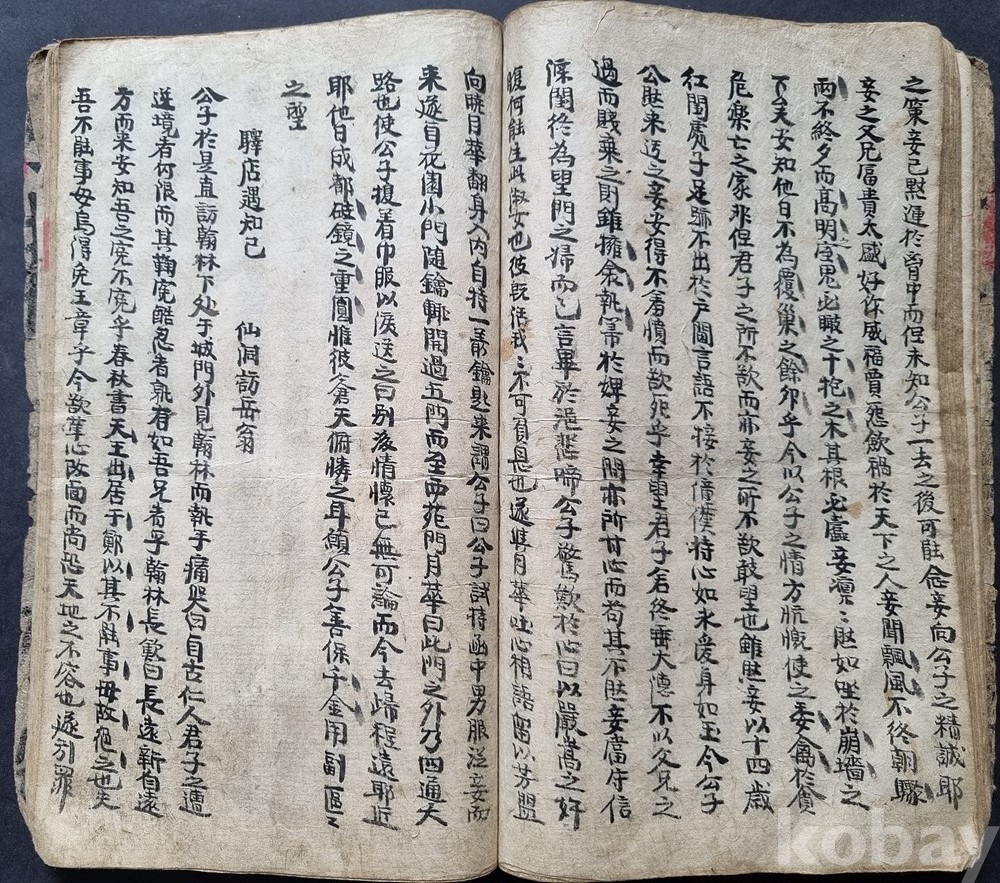 之策妾已默運於胷中而但未知公子一去之後可能念妾向公子之精誠耶
妾之父兄富貴太盛好作威福賈怨歛禍於天下之人妾聞飄風不終朝驟
雨不終夕而高明之家鬼必瞰之十抱之木其根必虛妾凜〻然如坐於崩墻之
下矣安知他日不為覆巢之餘卵乎今以公子之情方肮慨使之委禽於貧
危禦亡之家非但君子之所不欲而亦妾之所不欲敢望也雖然妾以十四歲
紅閨處子足跡不出於戶閾言語不接於僮僕持心如氷愛身如玉今公子
公然来迈之妾安得不羞憤而欲死乎幸望君子若終垂大德不以父兄之
過而賤棄之則雖擁衾執箒於婢妾之間亦所甘心而苟其不然妾當守信
深閨終為望門之婦而已言畢於浥悲啼公子驚歎於心曰以嚴嵩之奸
腹何能生此淑女也彼旣活我〻不可負恩也遂與月華吐心相語留以芳盟
向曉月華翻身入內自持一叢鑰匙来謂公子曰公子試持函中男服從妾而
来遂自花園小門随鑰輒開過五門而至西苑門月華曰此門之外乃四通大
路也使公子復着巾服以候送之曰別後情懷已無可論而今去歸程遠耶近
耶他日成都破鏡之重圓惟彼蒼天俯憐之耳願公子善保千金用副區〻
之望
驛店遇知己 仙洞訪岳翁
公子於是直訪翰林下处于城門外見翰林而執手痛哭曰自古仁人君子之遭
逆境者何限而其鞫寃酷忍者孰有如吾兄者乎翰林長歎曰長遠新自遠
方而来安知吾之寃不寃乎春秋書天王出居于鄭以其不能事母故絕之也夫
吾不能事母烏得免王章乎今欲革心改面而尚恐天地之不容也遂別罪
kobay